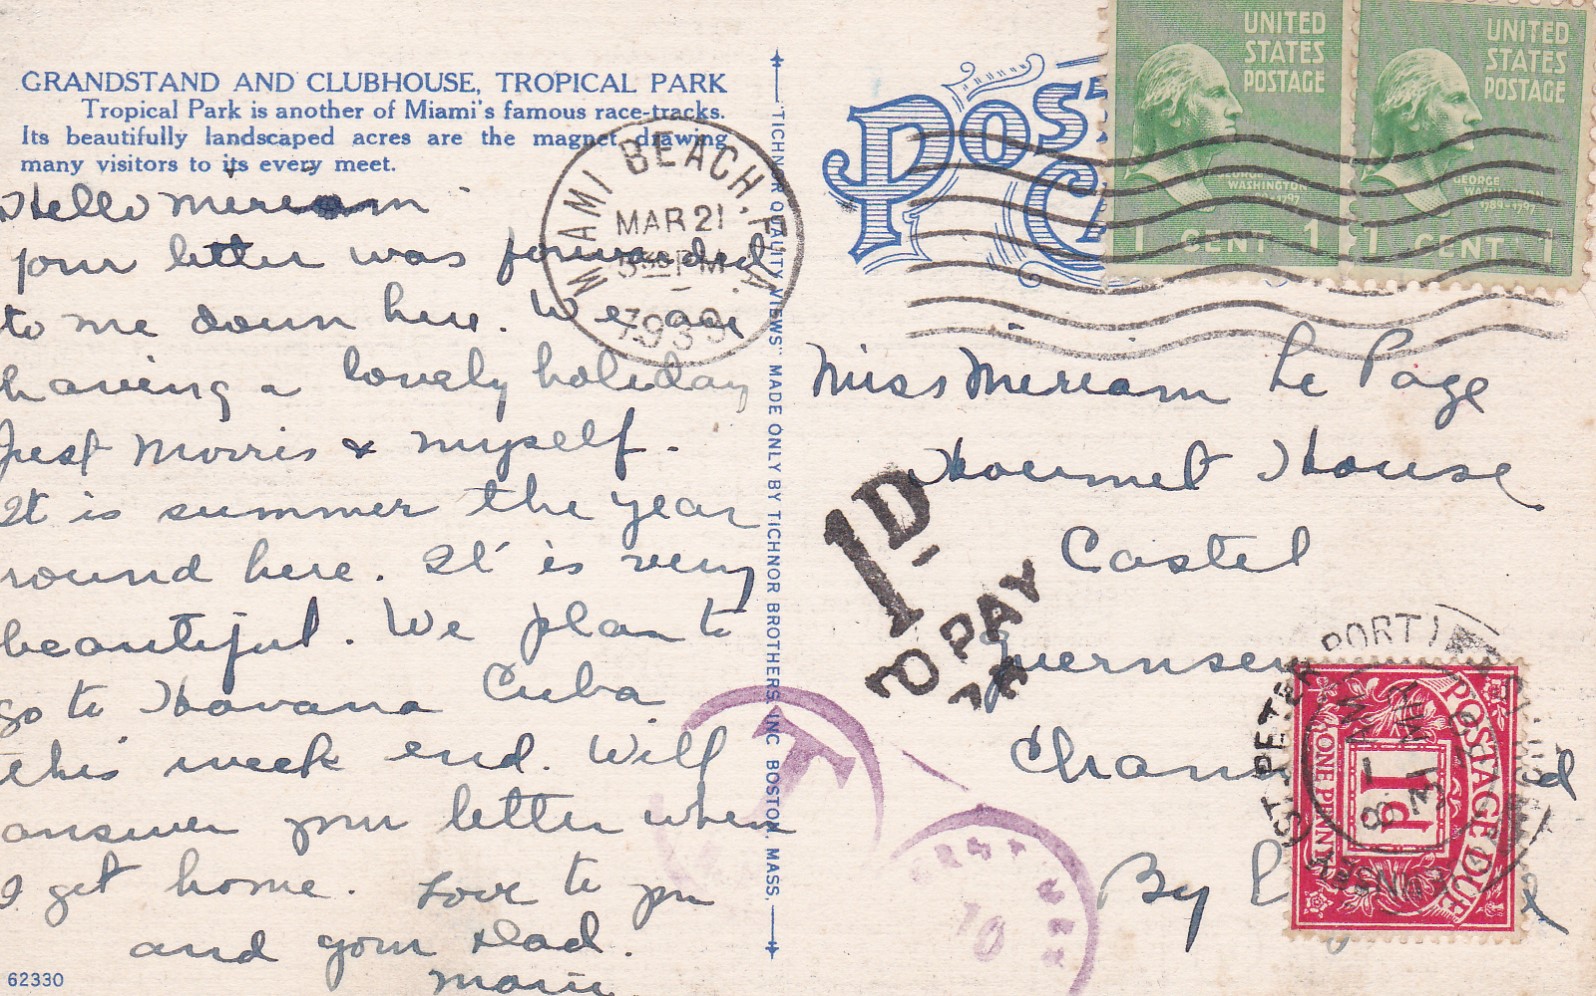 GRANDSTAND AND CLUBHOUSE, TROPICAL PARK
Tropical Park is another of Miami's famous race-tracks.
Its beautifully landscaped acres are the magnet drawing
many visitors to its every meet.
Hello Meriam
your letter was forwarded
to me down here. We are
having a lovely holiday
Just Morris & myself.
It is summer the year
round here. It is very
beautiful. We plan to
go to Havana Cuba
this week end. Will
answer your letter when
I get home. Love to you
and your Dad.
Marie
62330
MIAMI BEACH, FLA.
MAR 21
PM
1939
"TICHNOR QUALITY VIEWS" MADE ONLY BY TICHNOR BROTHERS, INC. BOSTON, MASS.
POST
UNITED
STATES
POSTAGE
GEORGE
WASHINGTON
1 CENT 1
UNITED
STATES
POSTAGE
GEORGE
WASHINGTON
1789-1797
1 CENT 1
Miss Meriam Le Page
Houmet House
Castel
Guernsey
By
1D
TO PAY
T
10
POSTAGE DUE
1d
ONE PENNY
ST. PETER PORT
GUERNSEY